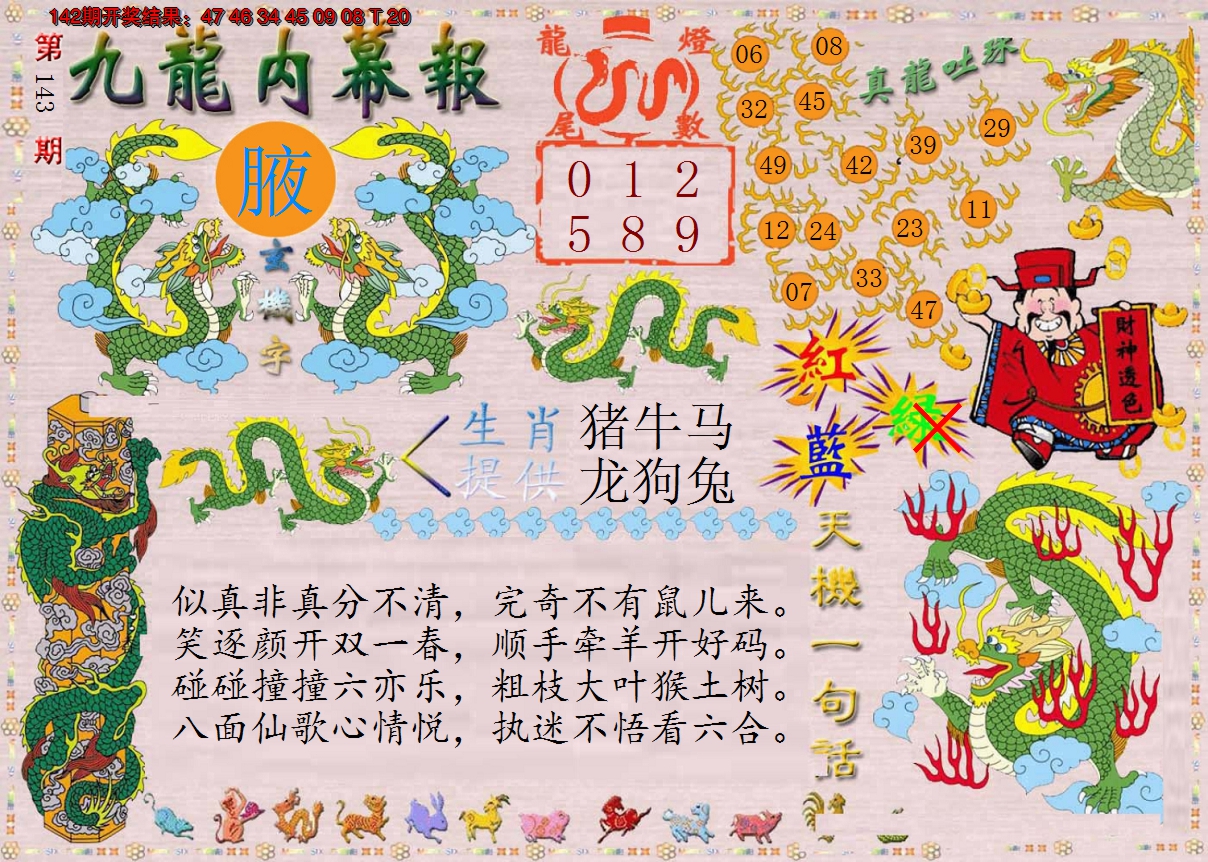 142期开奖结果：47 46 34 45 09 08 T 20
第143期
九龍内幕報
腋
玄機字
龍燈
尾數
0 1 2
5 8 9
真龍吐珠
06 08
32 45
39 29
49 42
12 24 23 11
07 33 47
紅
綠
藍
財神透色
生肖 猪牛马
提供 龙狗兔
天機一句话
似真非真分不清，完奇不有鼠儿来。
笑逐颜开双一春，顺手牵羊开好码。
碰碰撞撞六亦乐，粗枝大叶猴土树。
八面仙歌心情悦，执迷不悟看六合。